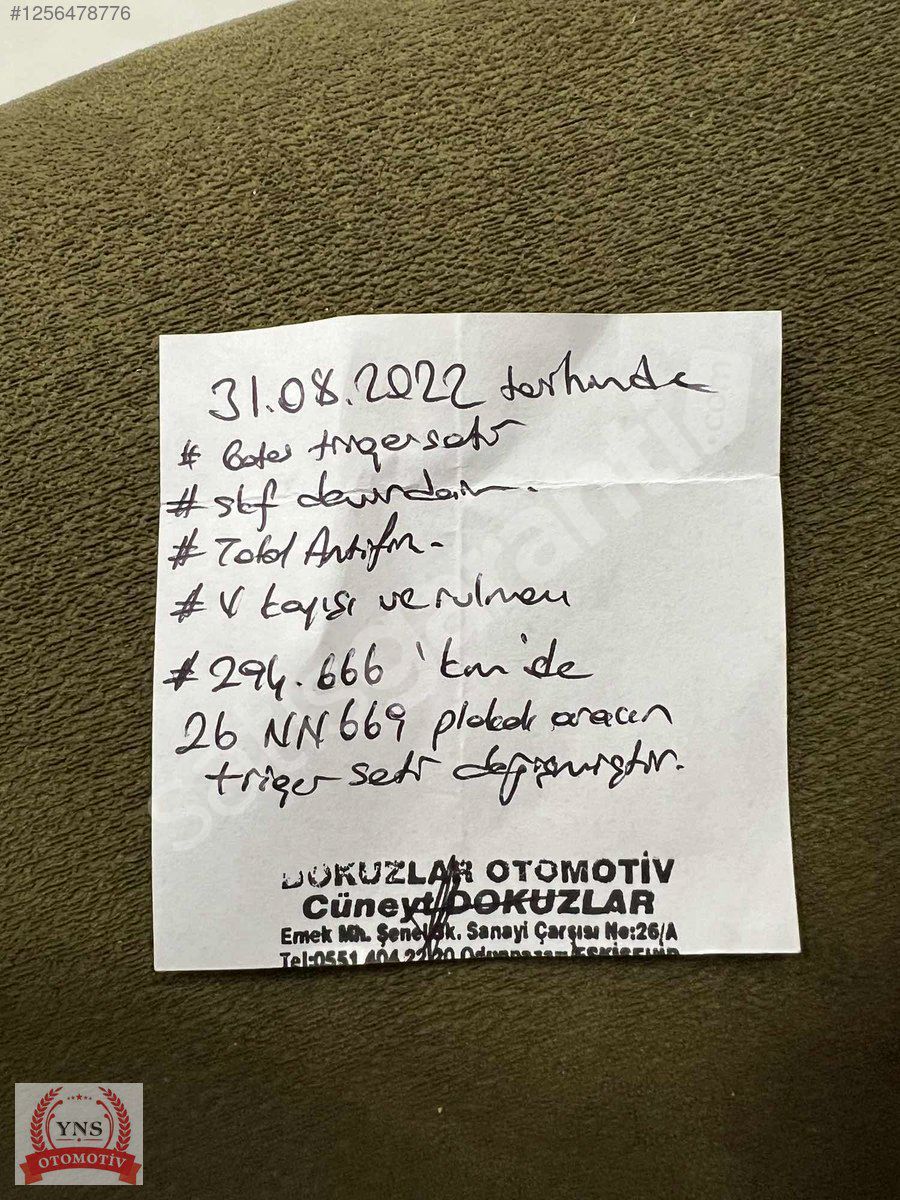 #1256478776
31.08.2022 tarhinde
# Gates triger seti
# skf devirdaim.
# Total Antifiriz.
# V kayışı ve rulmanı
# 294.666 'km'de
26 NN 669 plakalı aracın
triger seti değişmiştir.
DOKUZLAR OTOMOTİV
Cüneyt DOKUZLAR
Emek Mh. Şenel Sk. Sanayi Çarşısı No:26/A
Tel:0551 404 22 20 Odunpazarı/ESKİŞEHİR
YNS
OTOMOTİV